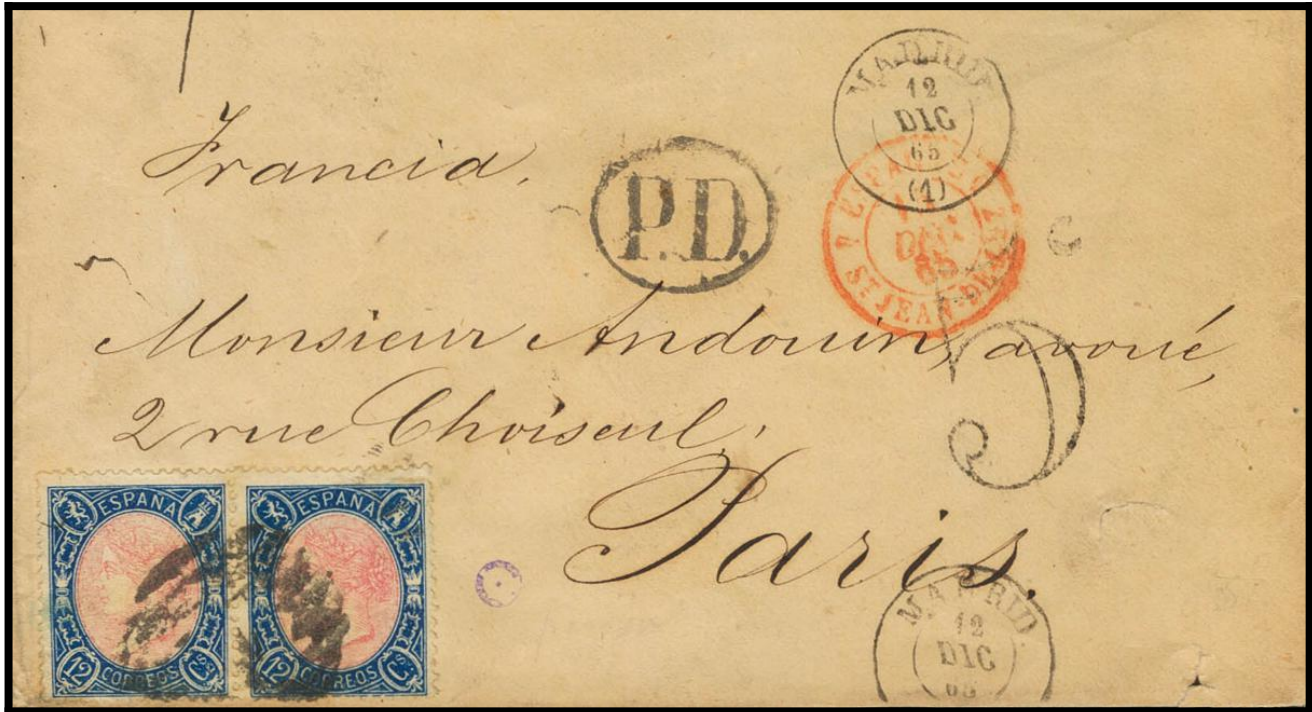 MADRID
12
DIC
65
(1)
Francia.
P.D.
DEC
65
ST JEAN-DE-LUZ
Monsieur Andouin, avoué,
2 rue Choiseul.
Paris.
ESPAÑA
12 CORREOS Cs.
ESPAÑA
12 CORREOS Cs.
MADRID
12
DIC
65